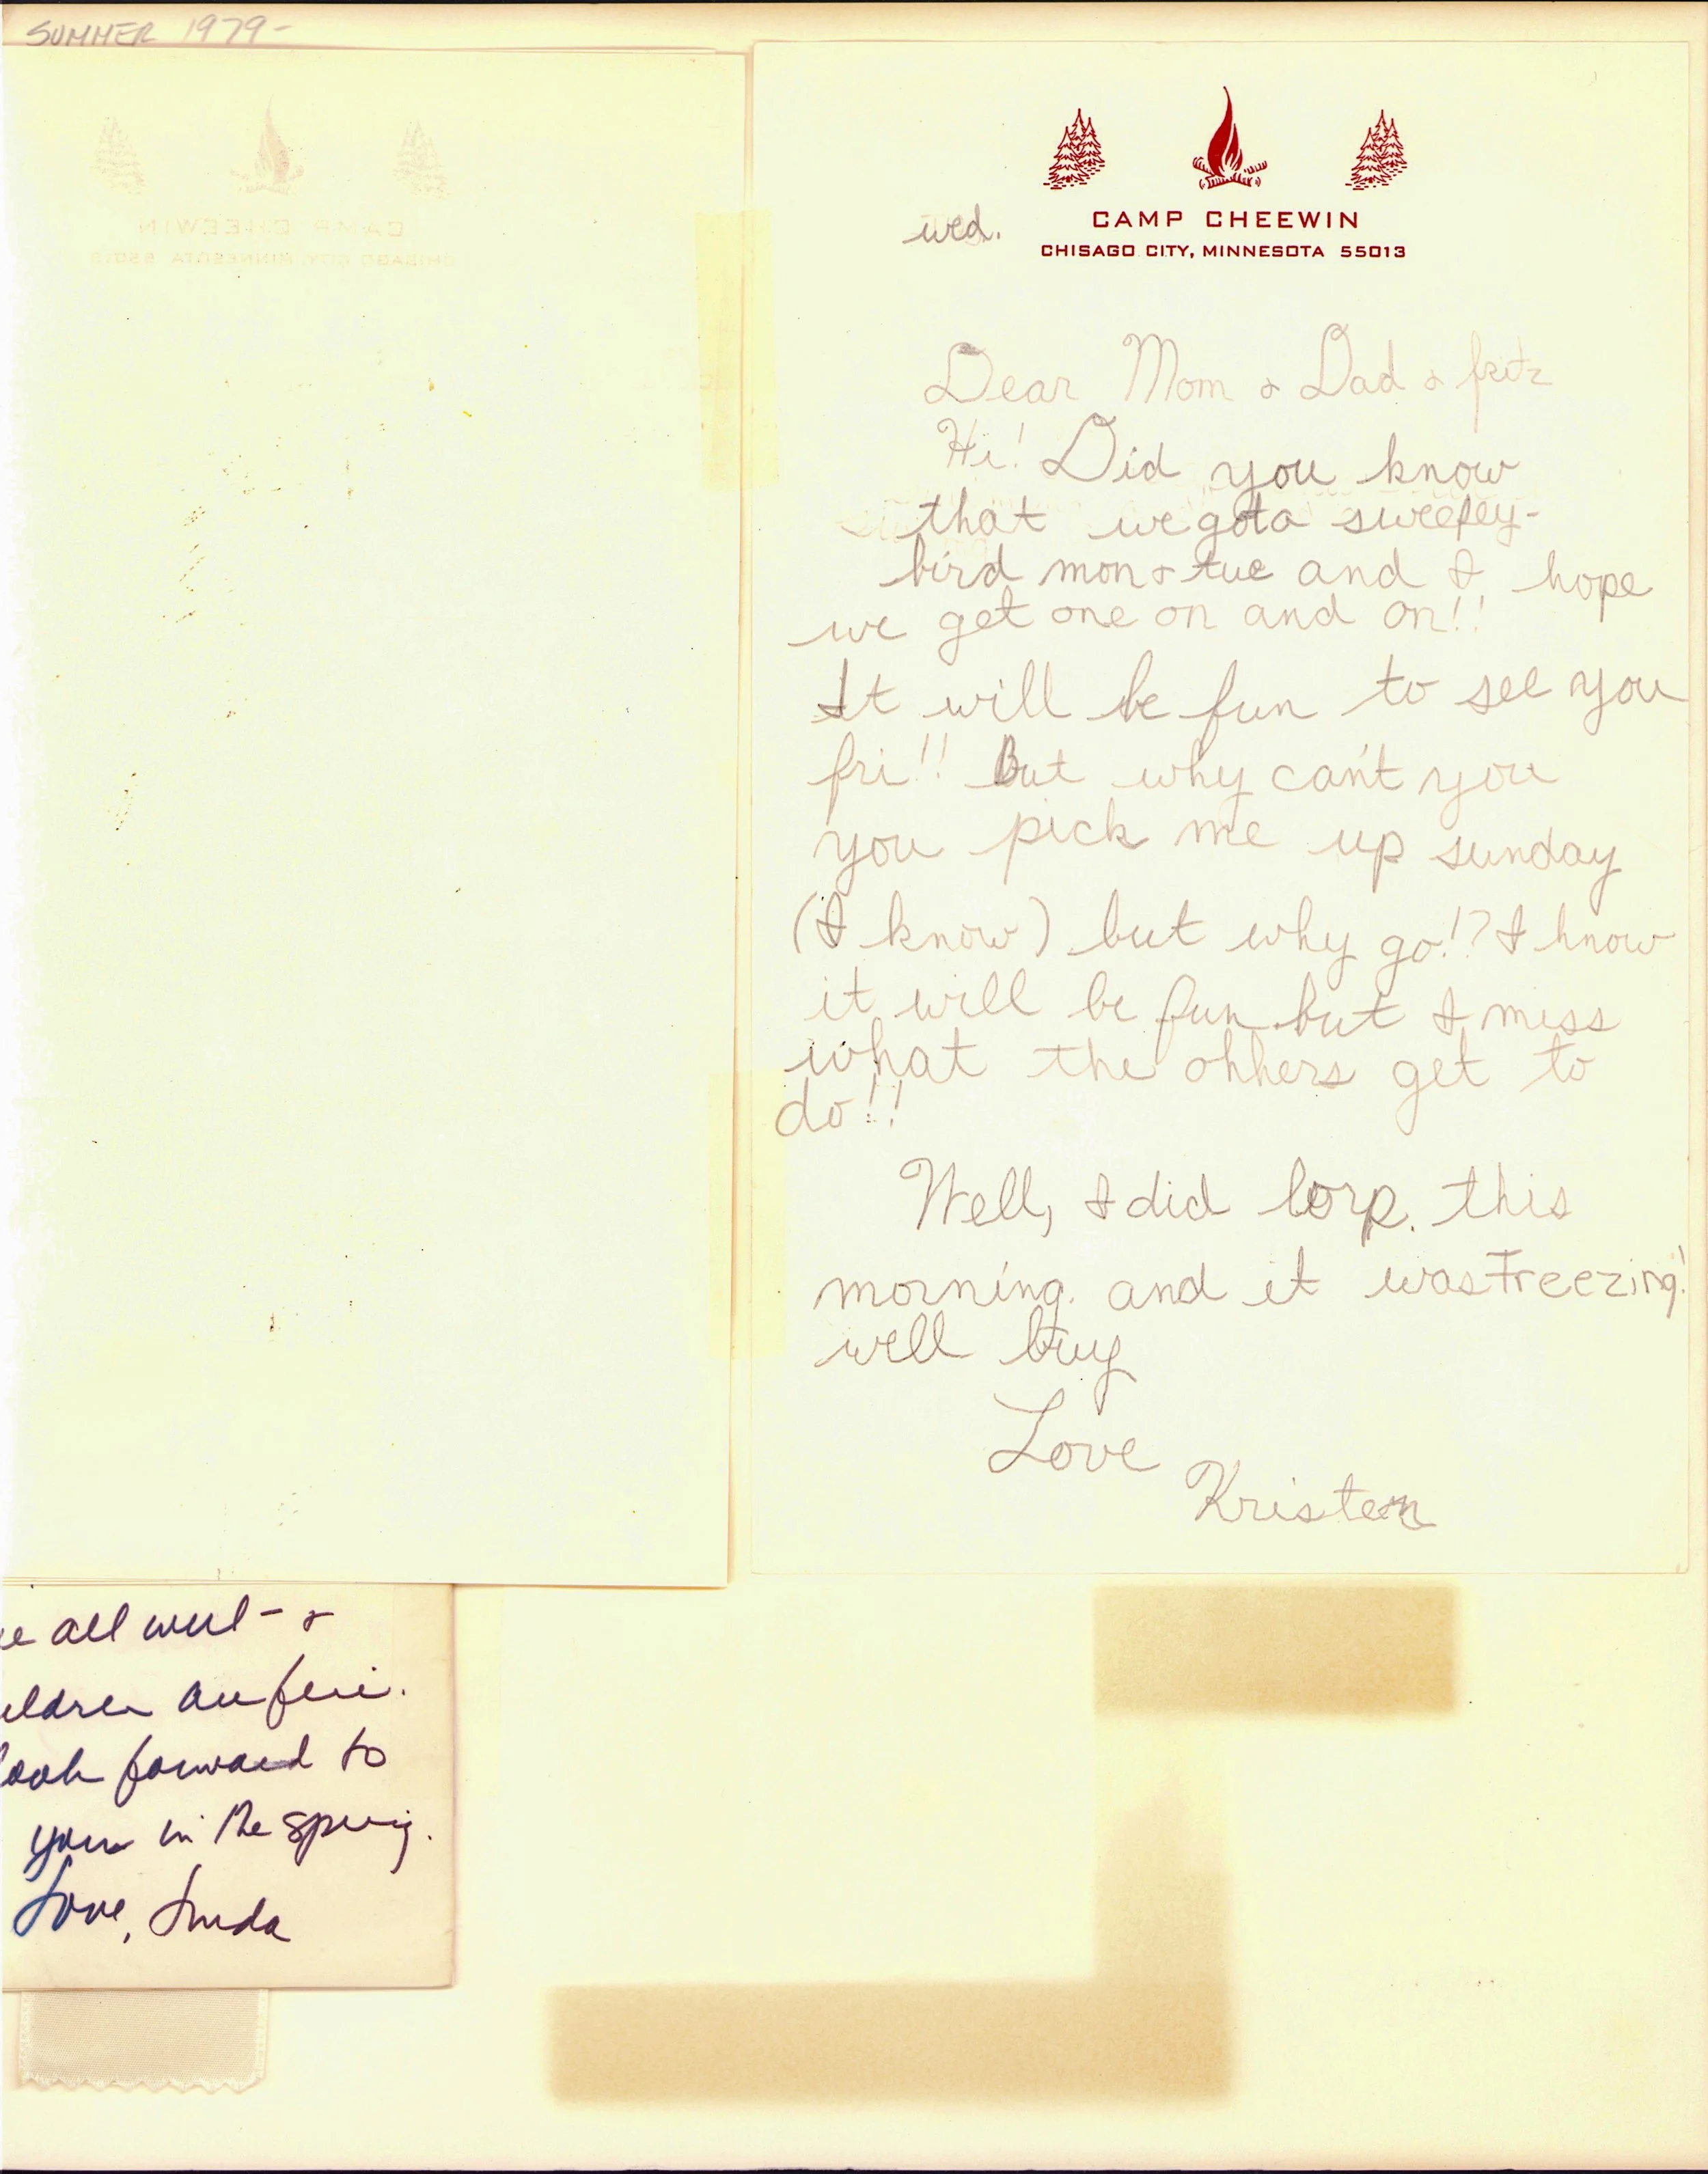 SUMMER 1979-
CAMP CHEEWIN
CHISAGO CITY, MINNESOTA 55013
wed.
CAMP CHEEWIN
CHISAGO CITY, MINNESOTA 55013
Dear Mom & Dad & fritz
Hi! Did you know
that we got a sweepey-
bird mon & tue and I hope
we get one on and on!!
It will be fun to see you
fri!! But why can't you
you pick me up sunday
(I know) but why go!? I know
it will be fun but I miss
what the ohhers get to
do!!
Well, I did lorp. this
morning. and it was Freezing!
well buy
Love
Kristen
e all well - &
ildren are fine.
look forward to
your in the spring.
Love, Linda